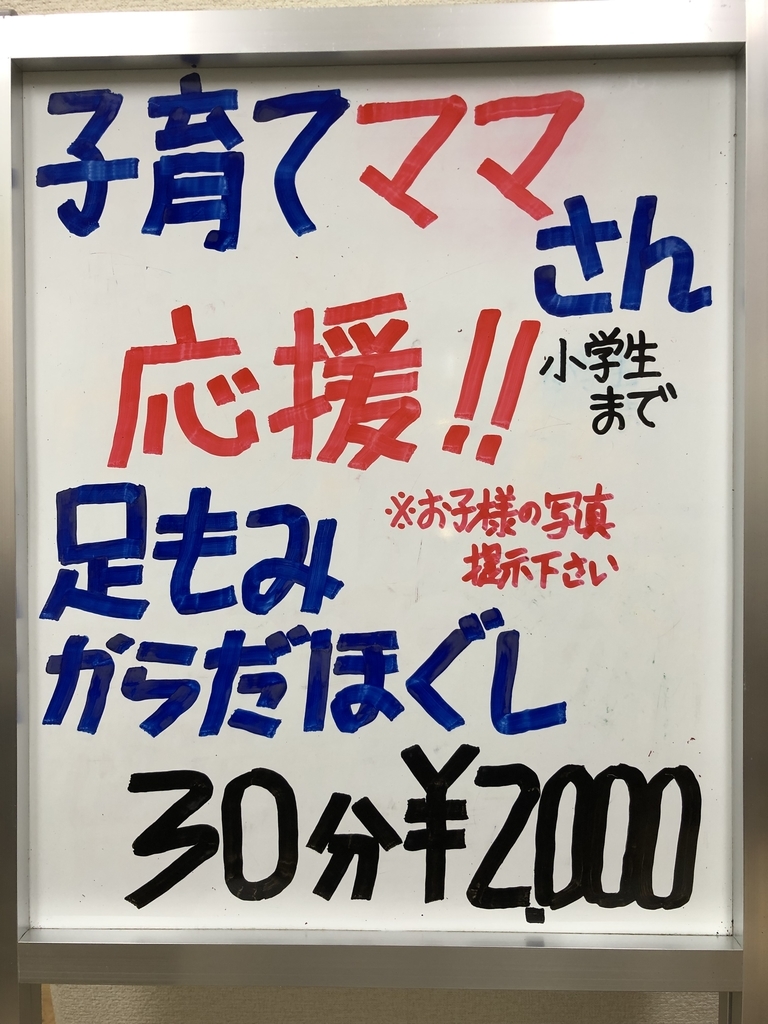 子育てママさん
応援!!
小学生
まで
※お子様の写真
提示下さい
足もみ
からだほぐし
30分¥2,000